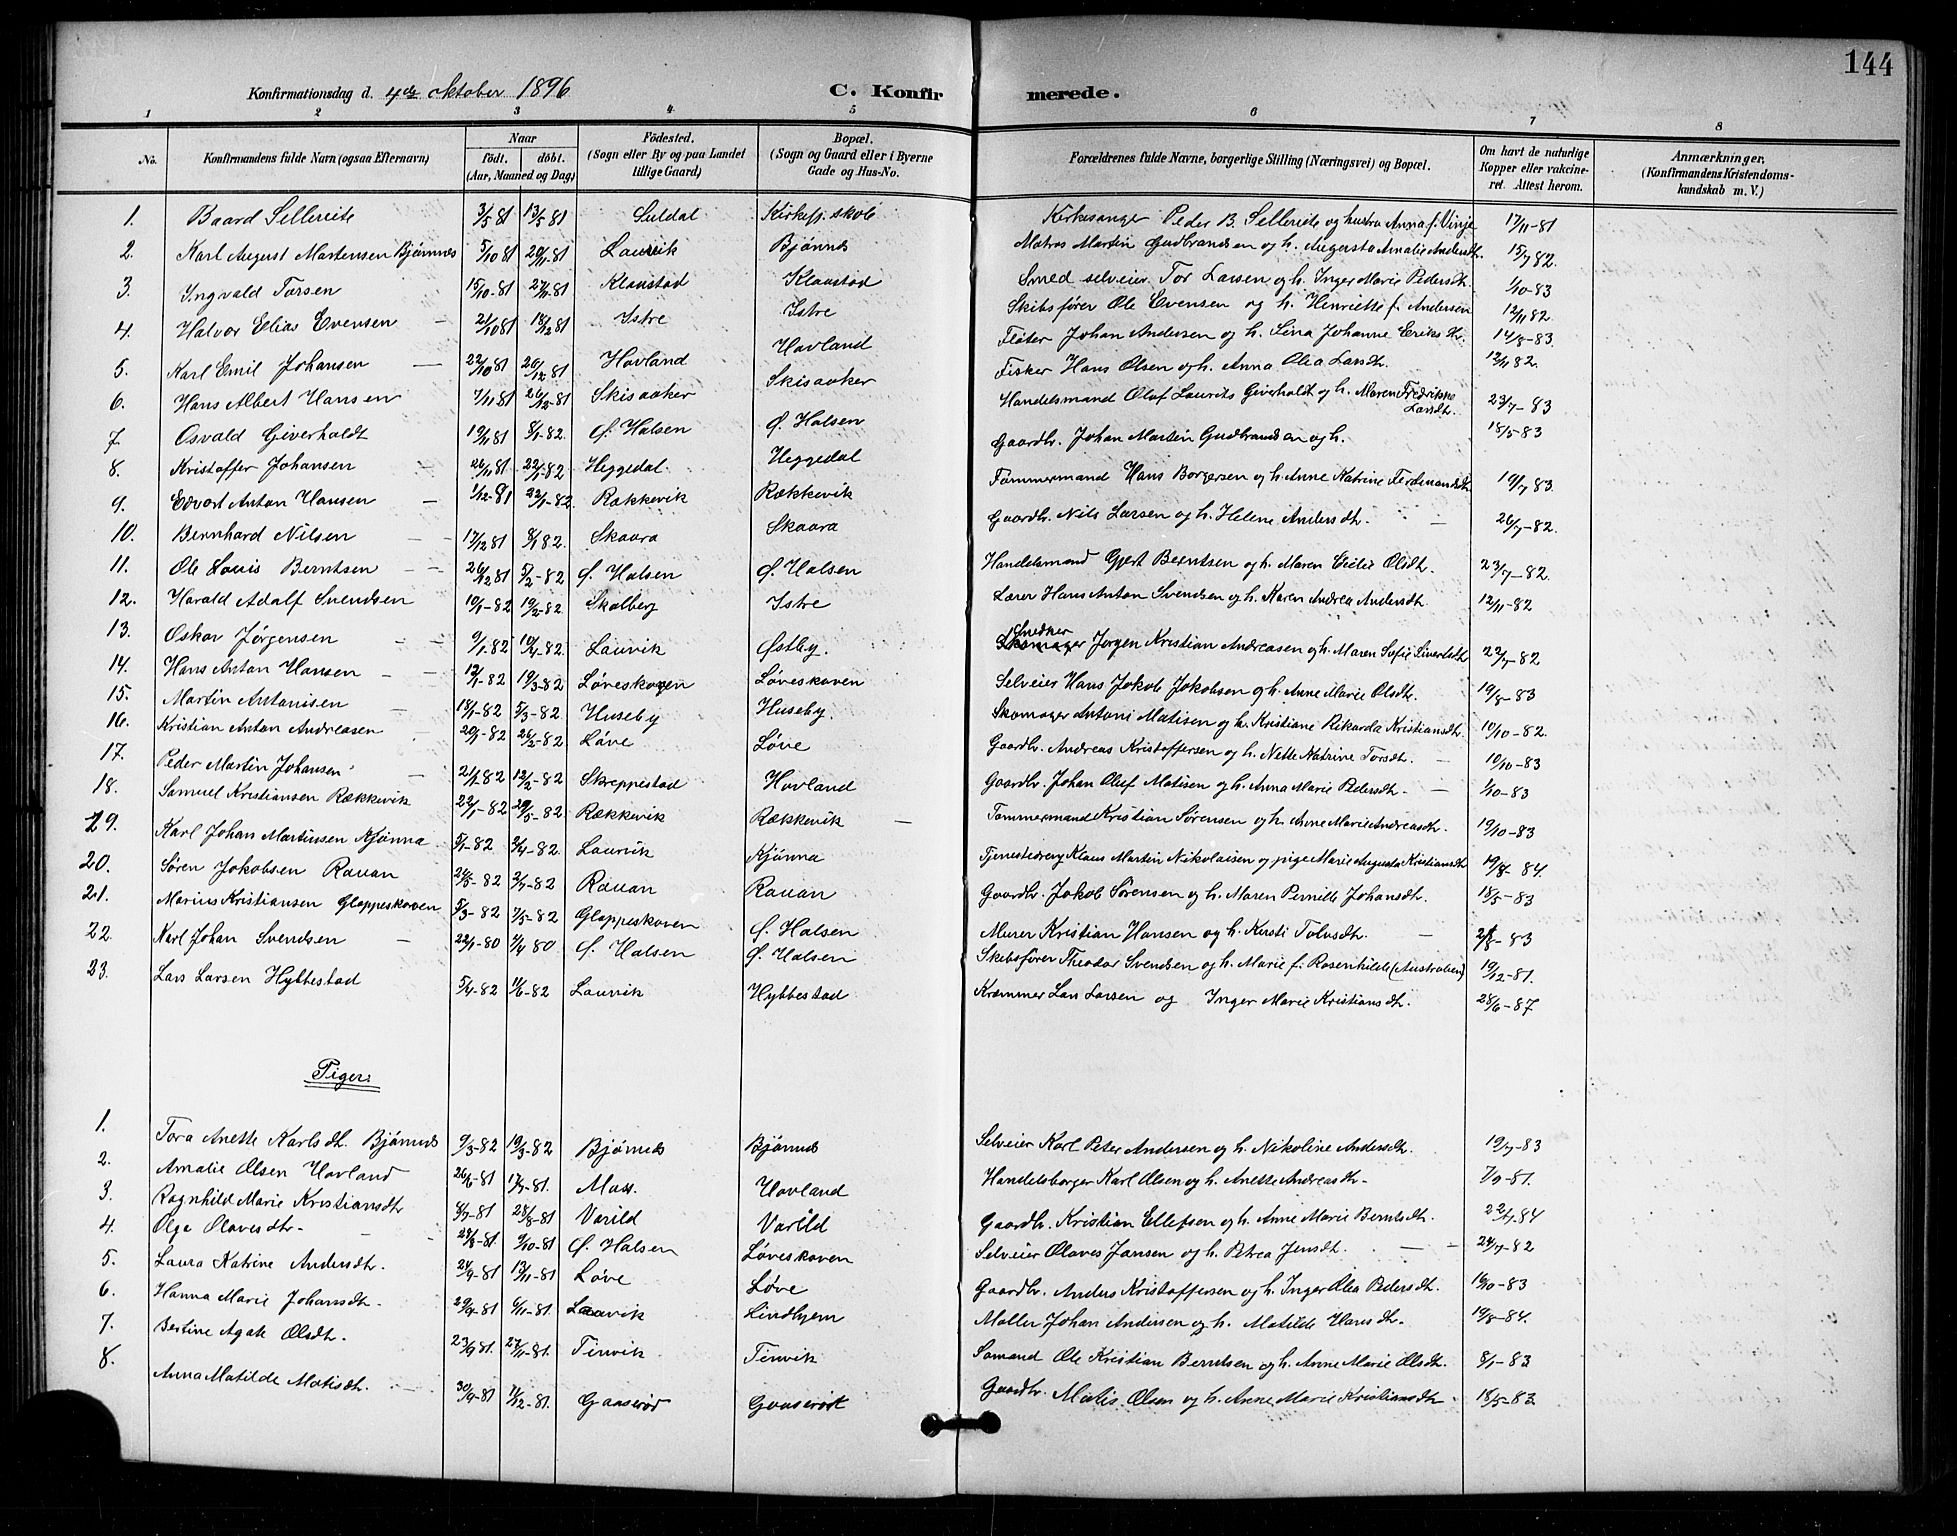 144
Konfirmationsdag d. 4de oktober 1896 C. Konfirmerede.
1 2 3 4 5 6 7 8
No. Konfirmandens fulde Navn (ogsaa Efternavn) Naar födt. döbt. (Aar, Maaned og Dag) Födested. (Sogn eller By og paa Landet tillige Gaard) Bopæl. (Sogn og Gaard eller i Byerne Gade og Hus-No. Forældrenes fulde Navne, borgerlige Stilling (Næringsvei) og Bopæl. Om havt de naturlige Kopper eller vakcineret. Attest herom. Anmærkninger. (Konfirmandens Kristendomskundskab m. V.)
1. Baard Sellereite 3/5 81 13/5 81 Suldal Kirkesp. skole Kirkesanger Peder B. Sellereite og hustru Anna f. Vinje 17/11-81
2. Karl August Martensen Bjönnes 5/10 81 20/11-81 Laurvik Bjönnes Matros Martin Gudbrandsen og h. Augusta Amalie Andersdt. 15/7 82.
3. Ingvald Torsen 15/10-81 27/11-81 Klaastad Klaastad Smed selveier Tor Larsen og h. Inger Marie Pedersdt. 1/10-83
4. Halvor Elias Evensen 21/10 81 18/12 81 Istre Istre Skibsförer Ole Evensen og h. Henriette f. Andersen 12/11 82.
5. Karl Emil Johansen 22/10 81 26/12 81 Hovland Hovland Fløter Johan Andersen og h. Lina Johanne Eriksdt. 14/8-83.
6. Hans Albert Hansen 7/11 81 26/12-81 Skisaaker Skisaaker Fisker Hans Olsen og h. Anna Olea Larsdt. 82.
7. Osvald Giverholdt 81 8/1-82. Ø. Halsen Ø. Halsen Handelsmand Olaf Laurits Giverholdt og h. Maren Fredrikke Larsdt. 23/7-83
8. Kristoffer Johansen 26/11 81 22/1-82 Heggedal Heggedal Gaardbr. Johan Martin Gudbrandsen og h. 18/5-83
9. Edvart Anton Hansen 1/12-81 22/1-82. Rækkevik Rækkevik Tømmermand Hans Borgersen og h. Anne Katrine Ferdinandsdt. 19/7 83.
10. Bernhard Nilsen 17/12 81 8/1 82. Skaara Skaara Gaardbr. Nils Larsen og h. Helene Andersdt. 26/7-82.
11. Ole Louis Berntsen 26/12 81 5/2-82 Ø. Halsen Ø. Halsen Handelsmand Gjert Berntsen og h. Maren Olsdt. 23/7-82.
12. Harald Adolf Svendsen 10/1-82 19/2-82 Skalberg Istre Lærer Hans Anton Svendsen og h. Karen Andrea Andersdt. 12/11-82
13. Oskar Jørgensen 9/1-82 10/4-82. Laurvik Østby. Snedker Jørgen Kristian Andreasen og h. Maren Sofie Sivertsdt. 22/7-82
14. Hans Anton Hansen 12/1-82 19/3-82 Løveskoven Løveskoven Selveier Hans Jakob Jakobsen og h. Anne Marie Olsdt. 19/8-83
15. Martin Antonisen 18/1-82 5/3-82. Huseby Huseby. Skomager Antoni Matisen og h. Kristiane Rikarda Kristiansdt. 10/10-82.
16. Kristian Anton Andreasen 20/1-82 26/2-82 Løve Løve Gaardbr. Andreas Kristoffersen og h. Nette Katrine Torsdt. 10/10-83
17. Peder Martin Johansen 21/1 82 12/2-82 Skreppestad Hovland Gaardbr. Johan Oluf Matisen og h. Anna Marie Pedersdt. 1/10-83
18. Samuel Kristiansen Rækkevik 22/1-82 29/5-82 Rækkevik Rækkevik Tømmermand Kristian Sørensen og h. Anne Marie Andreasdt. 19/10-83
19. Karl Johan Martinsen Kjønna 5/1-82 2/4-82. Laurvik Kjönna Tjenestedreng Klaus Martin Nikolaisen og pige Marie Augusta Kristiansdt 19/8-84.
20. Søren Jakobsen Rauan 24/5-82 2/7-82 Rauan Rauan Gaardbr. Jakob Sørensen og h. Maren Pernille Johansdt. 18/5-83
21. Marius Kristiansen Gloppeskoven 5/3-82 7/5-82 Gloppeskoven Ø. Halsen Murer Kristian Hansen og h. Kirsti Tolvsdt. 83
22. Karl Johan Svendsen 22/1-80 2/4 80 Ø. Halsen Ø. Halsen Skibsfører Theodor Svendsen og h. Marie f. Rosenkilde (Australien) 19/12-81.
23. Lars Larsen Hybbestad 5/4-82 11/6-82 Laurvik Hybbestad Kræmmer Lars Larsen og Inger Marie Kristiansdt. 28/6-87
Piger:
1. Tora Anette Karlsdt. Bjönnes 9/3-82 19/3-82 Bjönnes Bjönnes Selveier Karl Peter Andersen og h. Nikoline Andersdt. 19/7-83
2. Amalie Olsen Hovland 26/6-81 17/7-81. Moss. Hovland Handelsborger Karl Olsen og h. Anette Andreasdt. 7/9-81.
3. Ragnhild Marie Kristiansdt 8/7-81 28/8-81 Varild Varild Gaardbr. Kristian Ellefsen og h. Anne Marie Berntsdt. 22/7-84
4. Olga Olavesdt. 28/8-81 9/10-81 Ø. Halsen Løveskoven Selveier Olaves Jansen og h. Petrea Jensdt. 24/7-82
5. Laura Katrine Andersdt. 24/9-81 13/11-81 Løve Løve Gaardbr. Anders Kristoffersen og h. Inger Olea Pedersdt. 10/10-83
6. Hanna Marie Johansdt. 29/9-81 6/11-81. Laurvik Lindhjem Møller Johan Andersen og h. Matilde Hansdt. 19/8-84.
7. Bertine Agate Olsdt. 23/9 81. 27/11-81. Tenvik Tenvik Sømand Ole Kristian Berntsen og h. Anne Marie Olsdt. 8/1-83
8. Anna Matilde Matisdt. 30/9-81 11/12-81. Gaaserød Gaaserød Gaardbr. Matis Olsen og h. Anne Marie Kristiansdt 18/5-83